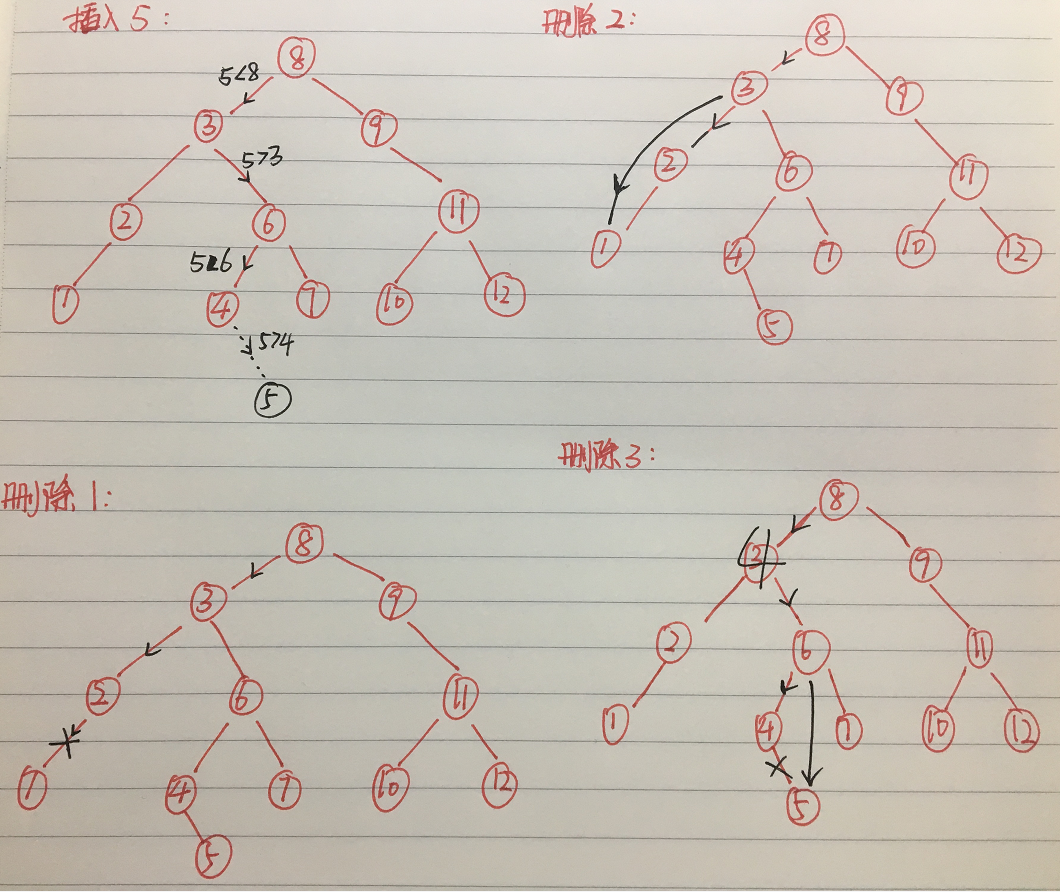 插入5:
8
5<8
3 9
5>3
2 6 11
5<6
1 4 7 10 12
5>4
5
删除2:
8
3 9
2 6 11
1 4 7 10 12
5
删除1:
8
3 9
2 6 11
1 4 7 10 12
5
删除3:
8
4 9
2 6 11
1 4 7 10 12
5